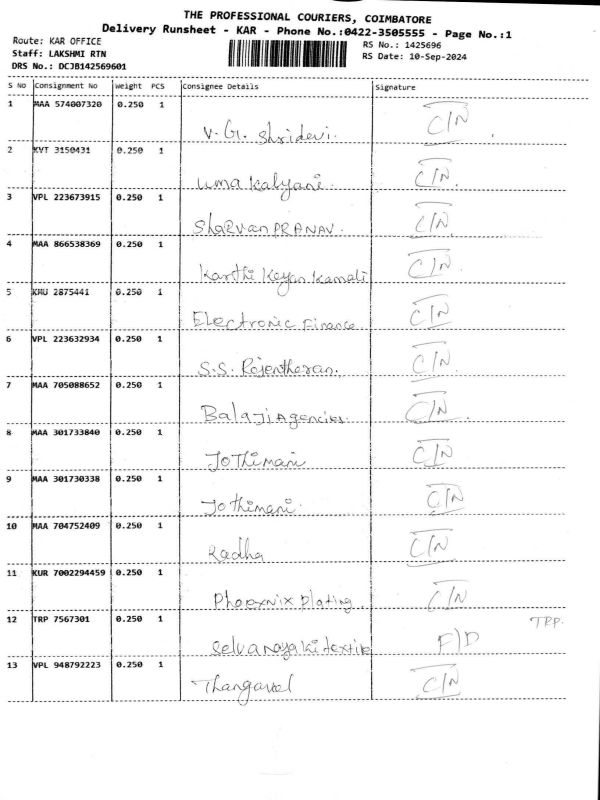 THE PROFESSIONAL COURIERS, COIMBATORE
Delivery Runsheet - KAR - Phone No.:0422-3505555 - Page No.:1
Route: KAR OFFICE
Staff: LAKSHMI RTN
DRS No.: DCJB142569601
RS No.: 1425696
RS Date: 10-Sep-2024
S No Consignment No Weight PCS Consignee Details Signature
1 MAA 574007320 0.250 1
V. G. Shridevi. C/N
2 KVT 3150431 0.250 1
uma kalyani. C/N
3 VPL 223673915 0.250 1
Sharvan PRANAV. C/N
4 MAA 866538369 0.250 1
Karthi Keyan Kamali C/N
5 KMU 2875441 0.250 1
Electronic Finance. C/N
6 VPL 223632934 0.250 1
S.S. Rajentheran. C/N
7 MAA 705088652 0.250 1
Balaji Agencies. C/N
8 MAA 301733840 0.250 1
JoThimani C/N
9 MAA 301730338 0.250 1
Jothimani. C/N
10 MAA 704752409 0.250 1
Radha C/N
11 KUR 7002294459 0.250 1
Phoenix Plating. C/N
12 TRP 7567301 0.250 1
Selvanayaki textile F/D TPP.
13 VPL 948792223 0.250 1
Thangavel C/N